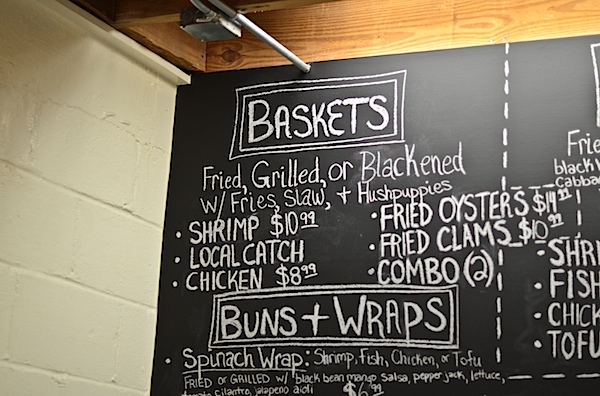 BASKETS
Fried, Grilled, or Blackened
w/ Fries, Slaw, + Hushpuppies
• SHRIMP $10.99
• LOCAL CATCH
• CHICKEN $8.99
• FRIED OYSTERS $14.99
• FRIED CLAMS $10.99
• COMBO (2)
BUNS + WRAPS
• Spinach Wrap: Shrimp, Fish, Chicken, or Tofu
FRIED or GRILLED w/ black bean mango salsa, pepper jack, lettuce,
cilantro, jalapeno aioli $6.99
Frie
black
Cabbag
• SHRI
• FISH
• CHICK
• TOFU